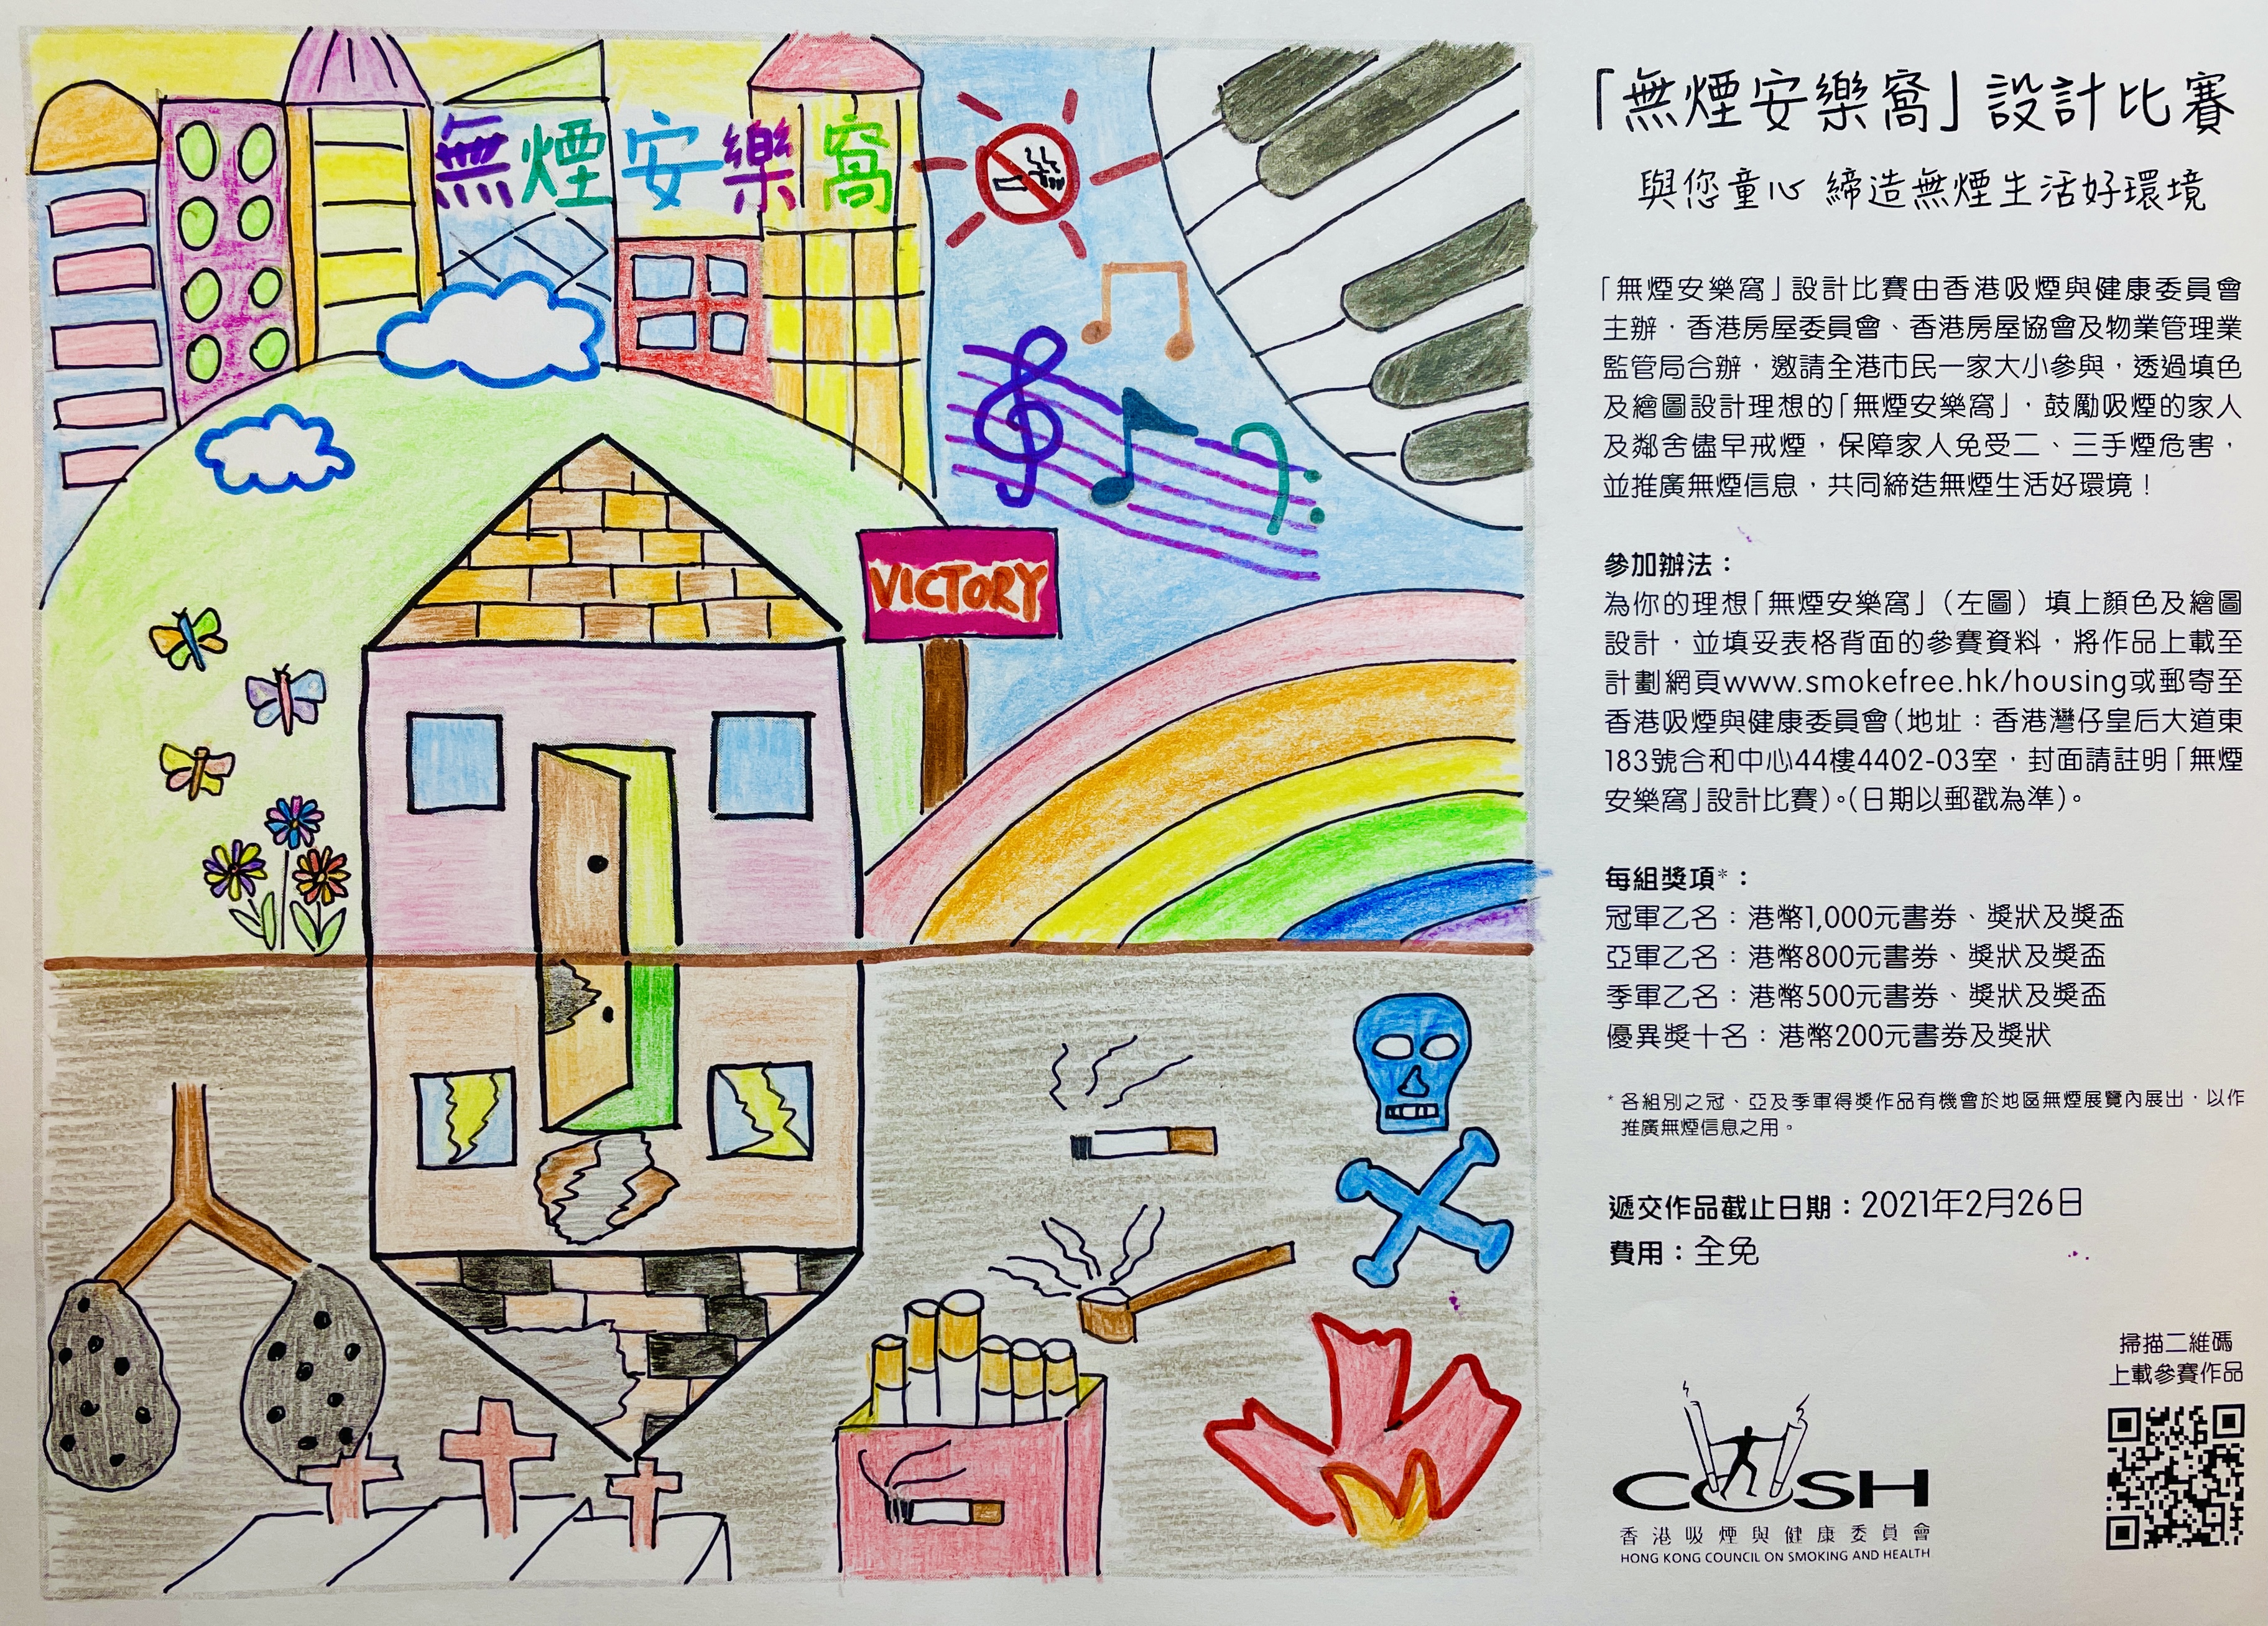 無煙安樂窩
VICTORY
「無煙安樂窩」設計比賽
與您童心 締造無煙生活好環境
「無煙安樂窩」設計比賽由香港吸煙與健康委員會
主辦，香港房屋委員會、香港房屋協會及物業管理業
監管局合辦，邀請全港市民一家大小參與，透過填色
及繪圖設計理想的「無煙安樂窩」，鼓勵吸煙的家人
及鄰舍儘早戒煙，保障家人免受二、三手煙危害，
並推廣無煙信息，共同締造無煙生活好環境！
參加辦法：
為你的理想「無煙安樂窩」（左圖）填上顏色及繪圖
設計，並填妥表格背面的參賽資料，將作品上載至
計劃網頁www.smokefree.hk/housing或郵寄至
香港吸煙與健康委員會（地址：香港灣仔皇后大道東
183號合和中心44樓4402-03室，封面請註明「無煙
安樂窩」設計比賽）。（日期以郵戳為準）。
每組獎項*：
冠軍乙名：港幣1,000元書券、獎狀及獎盃
亞軍乙名：港幣800元書券、獎狀及獎盃
季軍乙名：港幣500元書券、獎狀及獎盃
優異獎十名：港幣200元書券及獎狀
* 各組別之冠、亞及季軍得獎作品有機會於地區無煙展覽內展出，以作
推廣無煙信息之用。
遞交作品截止日期：2021年2月26日
費用：全免
掃描二維碼
上載參賽作品
COSH
香港吸煙與健康委員會
HONG KONG COUNCIL ON SMOKING AND HEALTH